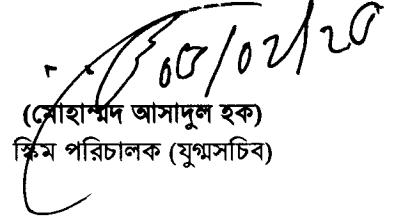 (মোহাম্মদ আসাদুল হক)
স্কিম পরিচালক (যুগ্মসচিব)